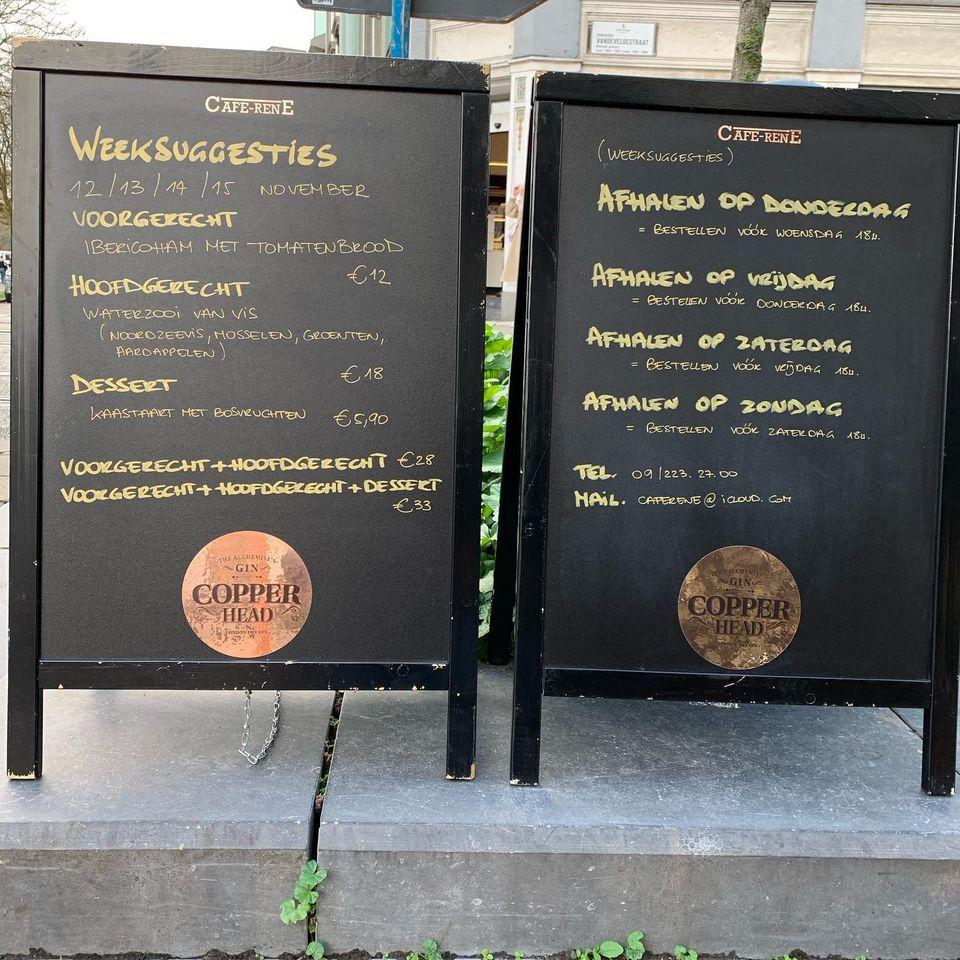 CAFE-RENE
WEEKSUGGESTIES
12/13/14/15 NOVEMBER
VOORGERECHT
IBERICOHAM MET TOMATENBROOD
€12
HOOFDGERECHT
WATERZOOI VAN VIS
(NOORDZEEVIS, MOSSELEN, GROENTEN,
AARDAPPELEN)
€18
DESSERT
KAASTAART MET BOSVRUCHTEN €5,90
VOORGERECHT+HOOFDGERECHT €28
VOORGERECHT+HOOFDGERECHT+DESSERT
€33
THE ALCHEMIST'S
GIN
COPPER
HEAD
LONDON DRY GIN
VANDEVELDESTRAAT
CAFE-RENE
(WEEKSUGGESTIES)
AFHALEN OP DONDERDAG
= BESTELLEN VÓÓR WOENSDAG 18u.
AFHALEN OP VRIJDAG
= BESTELLEN VÓÓR DONDERDAG 18u.
AFHALEN OP ZATERDAG
= BESTELLEN VÓÓR VRIJDAG 18u.
AFHALEN OP ZONDAG
= BESTELLEN VÓÓR ZATERDAG 18u.
TEL. 09/223.27.00
MAIL. CAFERENE@iCLOUD.COM
THE ALCHEMIST'S
GIN
COPPER
HEAD